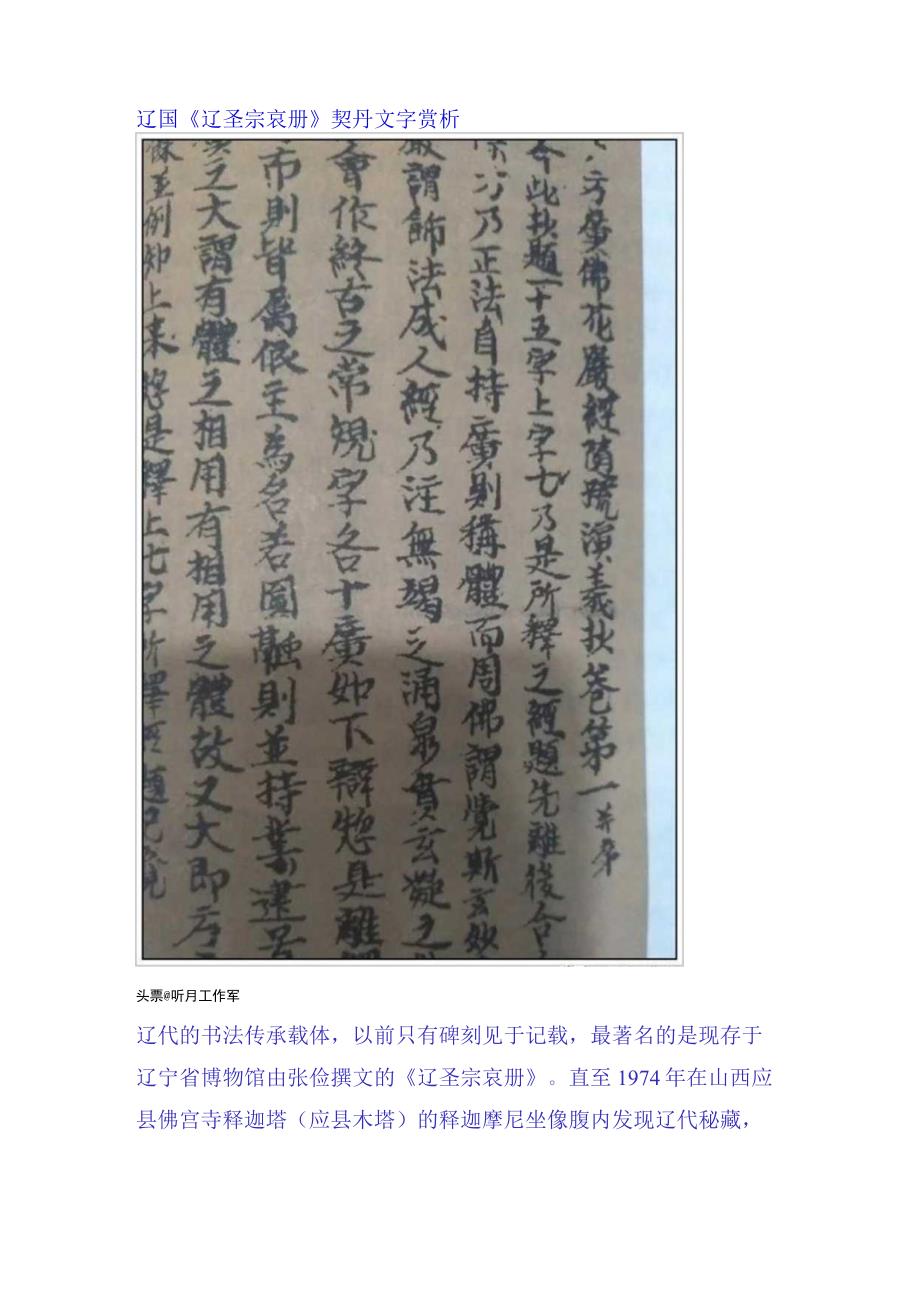 辽国《辽圣宗哀册》契丹文字赏析
方廣佛花嚴經隨疏演義抄卷第一并序
今此抄題一十五字上字七乃是所釋之經題先離後合
乃正法自持廣則稱體而周佛謂覺斯玄妙
嚴謂飾法成人經乃注無竭之涌泉貫玄凝之
會作終古之常規字各十廣如下辯揔是離釋
則皆屬依主為名若圓融則並持業建
之大謂有體之相用有相用之體故又大即方
並例知上来揔是釋上七字所釋經題
头票@听月工作军
辽代的书法传承载体，以前只有碑刻见于记载，最著名的是现存于
辽宁省博物馆由张俭撰文的《辽圣宗哀册》。直至 1974 年在山西应
县佛宫寺释迦塔（应县木塔）的释迦摩尼坐像腹内发现辽代秘藏，